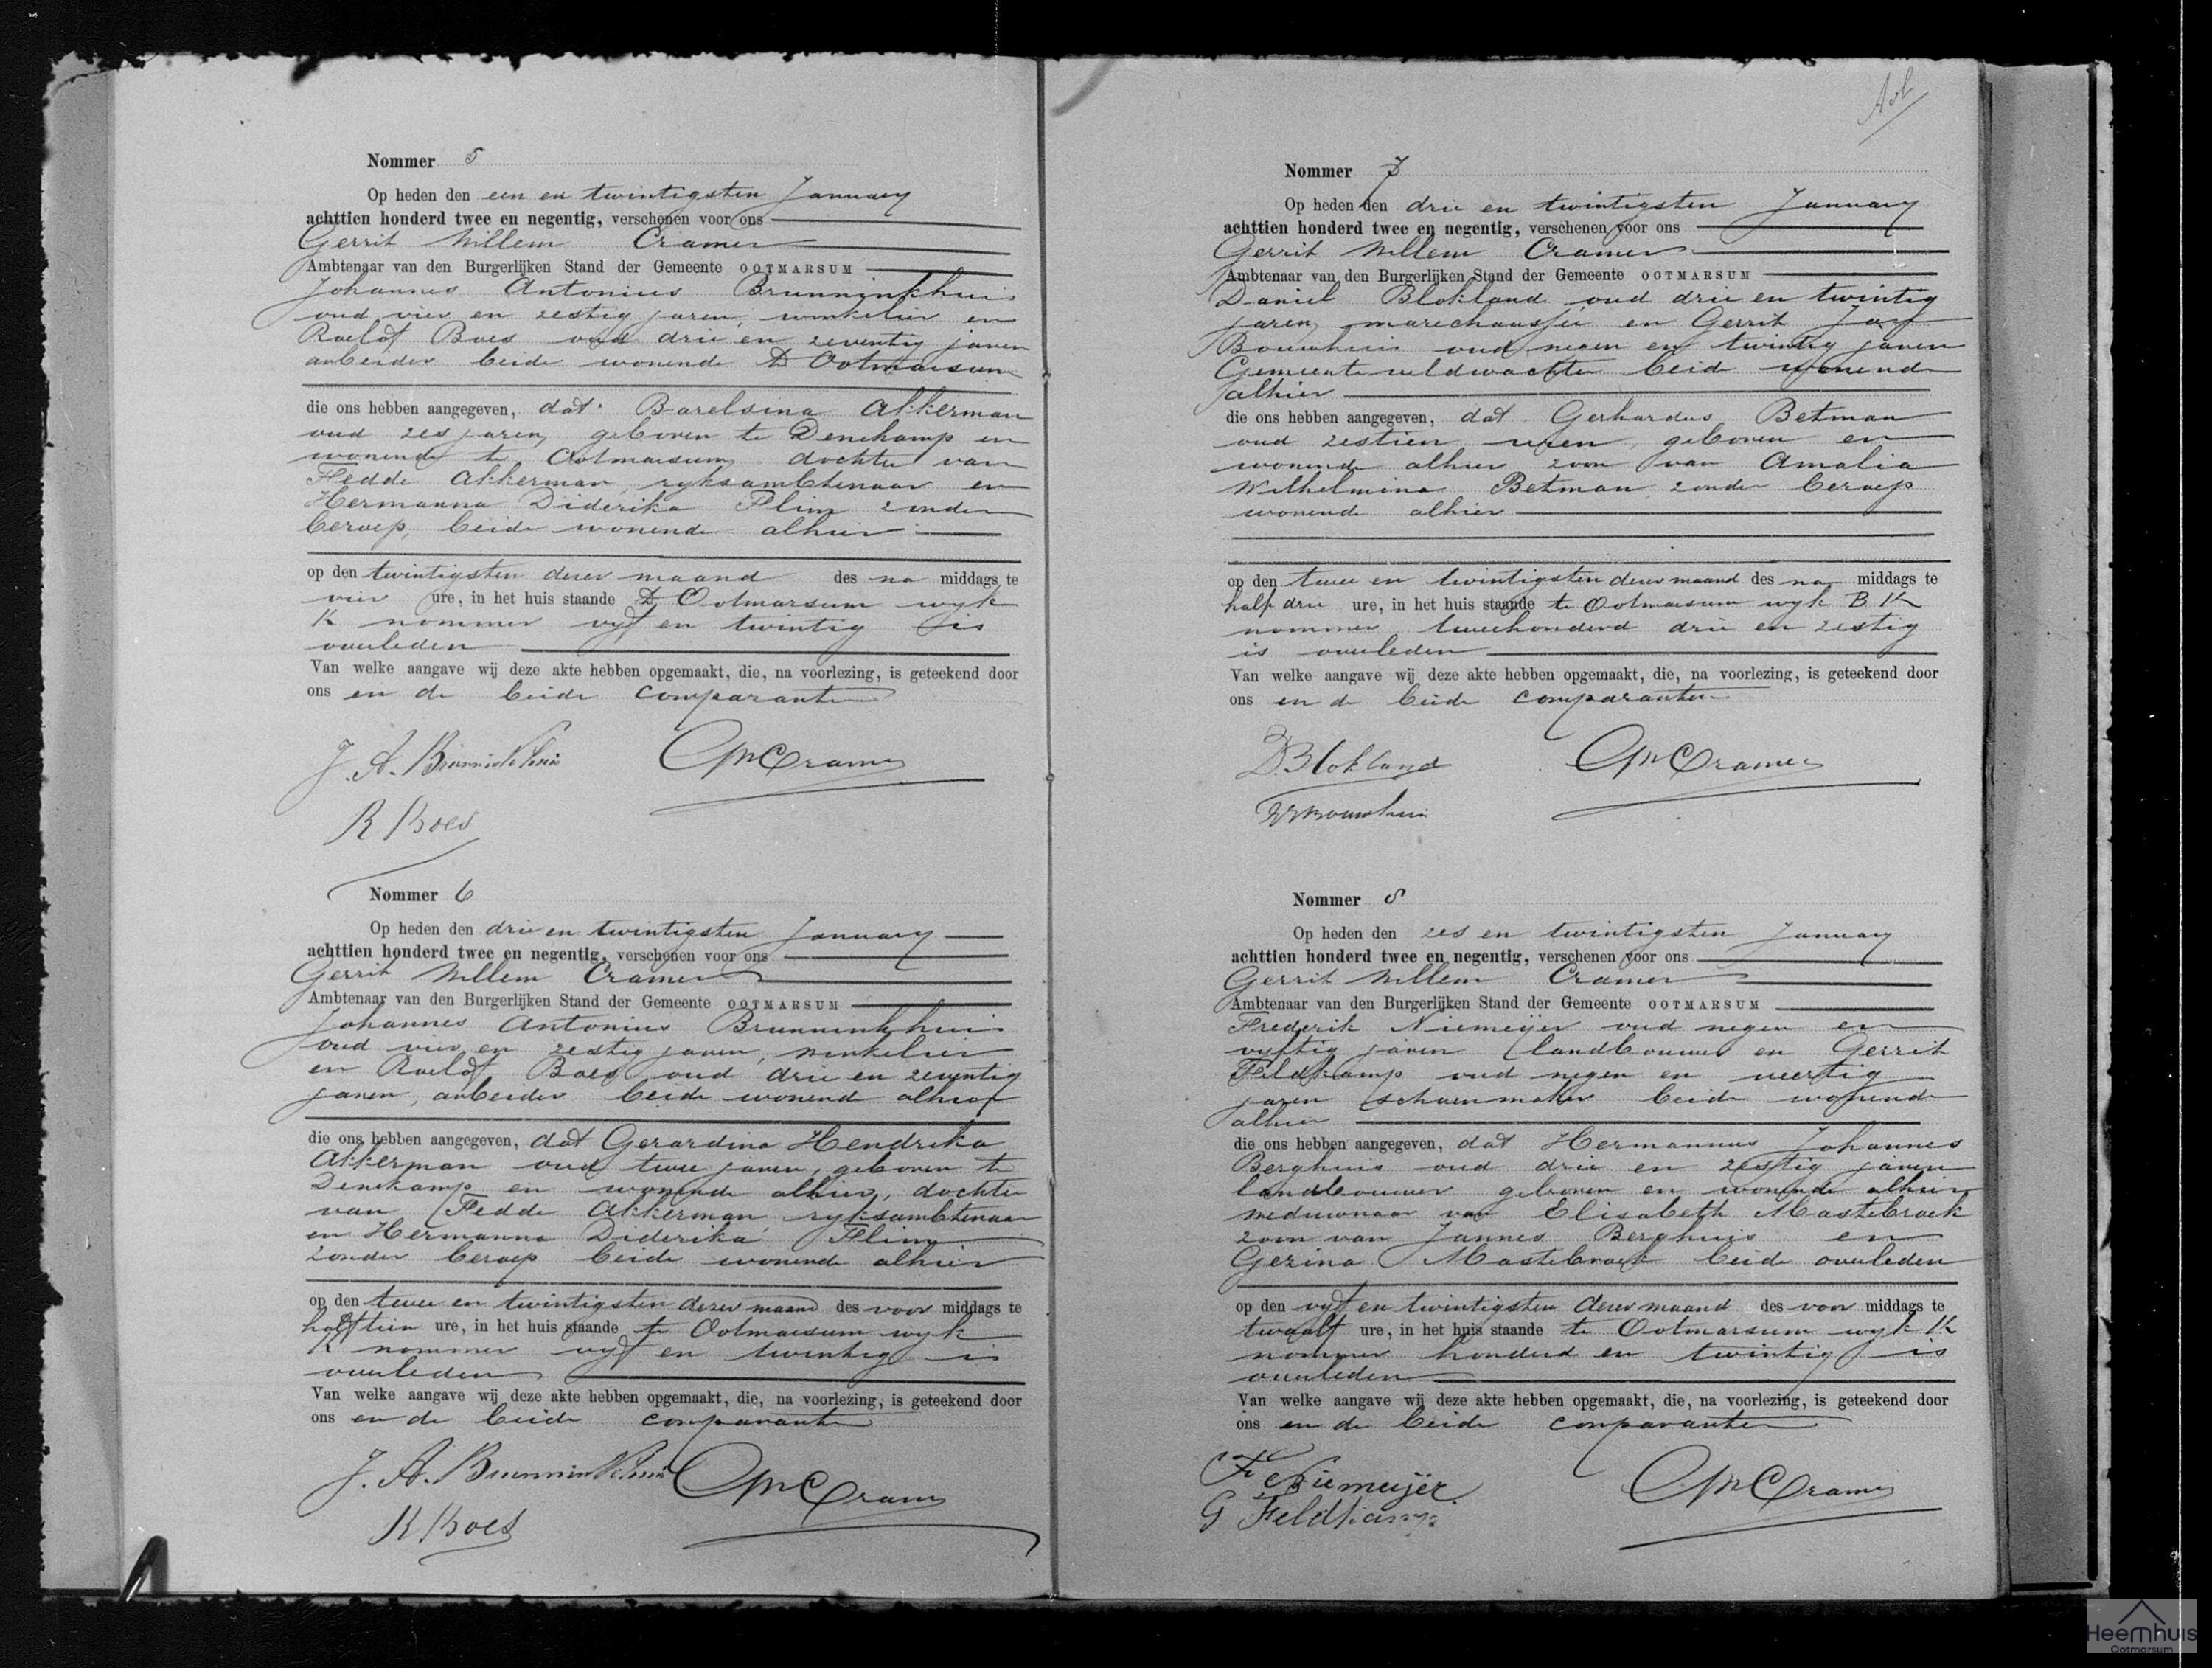 Nommer 5
Op heden den een en twintigsten January
achttien honderd twee en negentig, verschenen voor ons
Gerrit Willem Cramer
Ambtenaar van den Burgerlijken Stand der Gemeente OOTMARSUM
Johannes Antonius Brunninkhuis
oud vier en zestig jaren, winkelier en
Roelof Boes oud drie en zeventig jaren
arbeider beide wonende te Ootmarsum
die ons hebben aangegeven, dat Barelsina Akkerman
oud zes jaren, geboren te Denekamp en
wonende te Ootmarsum, dochter van
Fedde Akkerman, ryksambtenaar en
Hermanna Diderika Flim zonder
beroep, beide wonende alhier
op den twintigsten dezer maand des na middags te
vier ure, in het huis staande te Ootmarsum wyk
K nommer vyf en twintig is
overleden
Van welke aangave wij deze akte hebben opgemaakt, die, na voorlezing, is geteekend door
ons en de beide comparanten
J. A. Brunninkhuis GWCramer
R Boes
Nommer 6
Op heden den drie en twintigsten January
achttien honderd twee en negentig, verschenen voor ons
Gerrit Willem Cramer
Ambtenaar van den Burgerlijken Stand der Gemeente OOTMARSUM
Johannes Antonius Brunninkhuis
oud vier en zestig jaren, winkelier
en Roelof Boes oud drie en zeventig
jaren, arbeider beide wonende alhier
die ons hebben aangegeven, dat Gerardina Hendrika
Akkerman oud twee jaren, geboren te
Denekamp en wonende alhier, dochter
van Fedde Akkerman, ryksambtenaar
en Hermanna Diderika Flim
zonder beroep beide wonende alhier
op den twee en twintigsten dezer maand des voor middags te
half tien ure, in het huis staande te Ootmarsum wyk
K nommer vyf en twintig is
overleden
Van welke aangave wij deze akte hebben opgemaakt, die, na voorlezing, is geteekend door
ons en de beide comparanten
J. A. Brunninkhuis GWCramer
R Boes
Nommer 7
Op heden den drie en twintigsten January
achttien honderd twee en negentig, verschenen voor ons
Gerrit Willem Cramer
Ambtenaar van den Burgerlijken Stand der Gemeente OOTMARSUM
Daniel Blokland oud drie en twintig
jaren, marechaussée en Gerrit Jan
Bouwhuis oud negen en twintig jaren
Gemeente veldwachter beide wonende
alhier
die ons hebben aangegeven, dat Gerhardus Betman
oud zestien uren, geboren en
wonende alhier zoon van Amalia
Wilhelmina Betman, zonder beroep
wonende alhier
op den twee en twintigsten dezer maand des na middags te
half drie ure, in het huis staande te Ootmarsum wyk B K
nommer tweehonderd drie en zestig
is overleden
Van welke aangave wij deze akte hebben opgemaakt, die, na voorlezing, is geteekend door
ons en de beide comparanten
D. Blokland GWCramer
Bouwhuis
Nommer 8
Op heden den zes en twintigsten January
achttien honderd twee en negentig, verschenen voor ons
Gerrit Willem Cramer
Ambtenaar van den Burgerlijken Stand der Gemeente OOTMARSUM
Frederik Niemeijer oud negen en
vyftig jaren landbouwer en Gerrit
Feldkamp oud negen en veertig
jaren schoenmaker beide wonende
alhier
die ons hebben aangegeven, dat Hermannus Johannes
Berghuis oud drie en zestig jaren
landbouwer geboren en wonende alhier
weduwnaar van Elisabeth Mastebroek
zoon van Jannes Berghuis en
Gezina Mastebroek beide overleden
op den vyf en twintigsten dezer maand des voor middags te
twaalf ure, in het huis staande te Ootmarsum wyk K
nommer honderd en twintig is
overleden
Van welke aangave wij deze akte hebben opgemaakt, die, na voorlezing, is geteekend door
ons en de beide comparanten
F Niemeijer GWCramer
G Feldkamp
Heemhuis
Ootmarsum